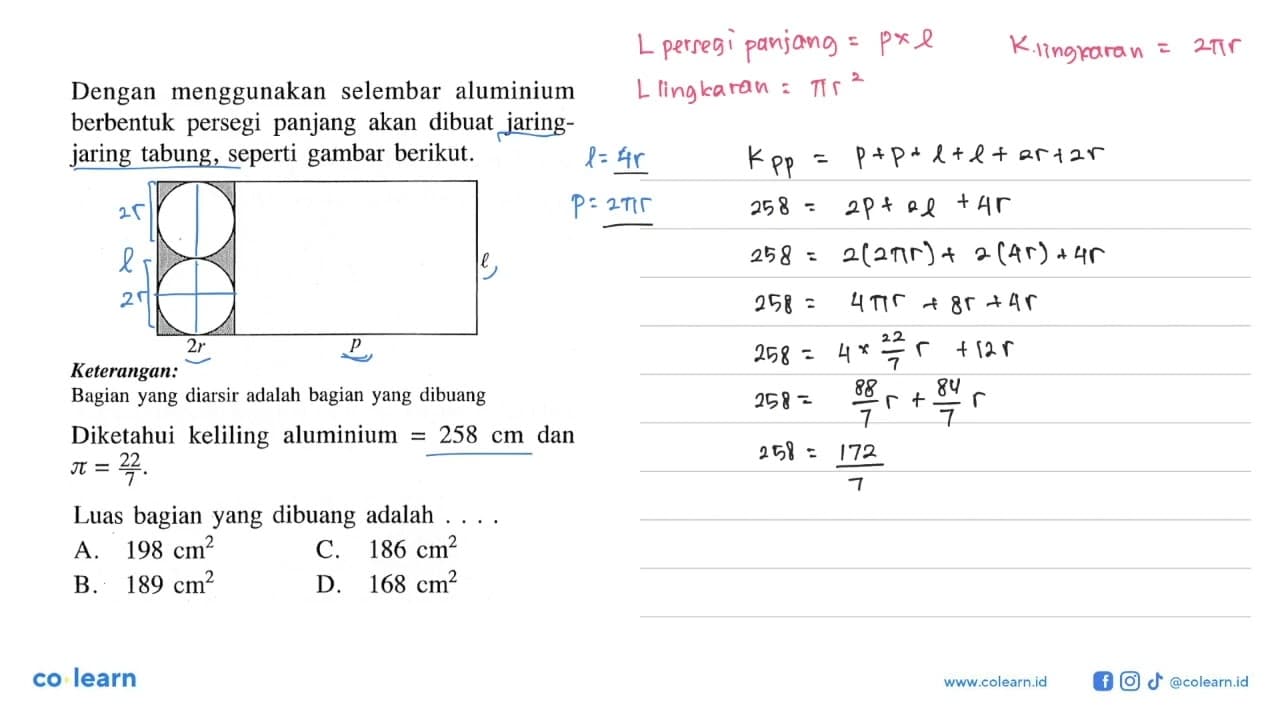 L persegi panjang = p × l
K.lingkaran = 2πr
L lingkaran = πr²
Dengan menggunakan selembar aluminium
berbentuk persegi panjang akan dibuat jaring-
jaring tabung, seperti gambar berikut.
2r
l
2r
l
2r
p
Keterangan:
Bagian yang diarsir adalah bagian yang dibuang
Diketahui keliling aluminium = 258 cm dan
π = 22/7.
Luas bagian yang dibuang adalah . . . .
A. 198 cm²
C. 186 cm²
B. 189 cm²
D. 168 cm²
l = 4r
p = 2πr
K pp = p + p + l + l + 2r + 2r
258 = 2p + 2l + 4r
258 = 2(2πr) + 2(4r) + 4r
258 = 4πr + 8r + 4r
258 = 4 × 22/7 r + 12r
258 = 88/7 r + 84/7 r
258 = 172/7
co·learn
www.colearn.id
@colearn.id